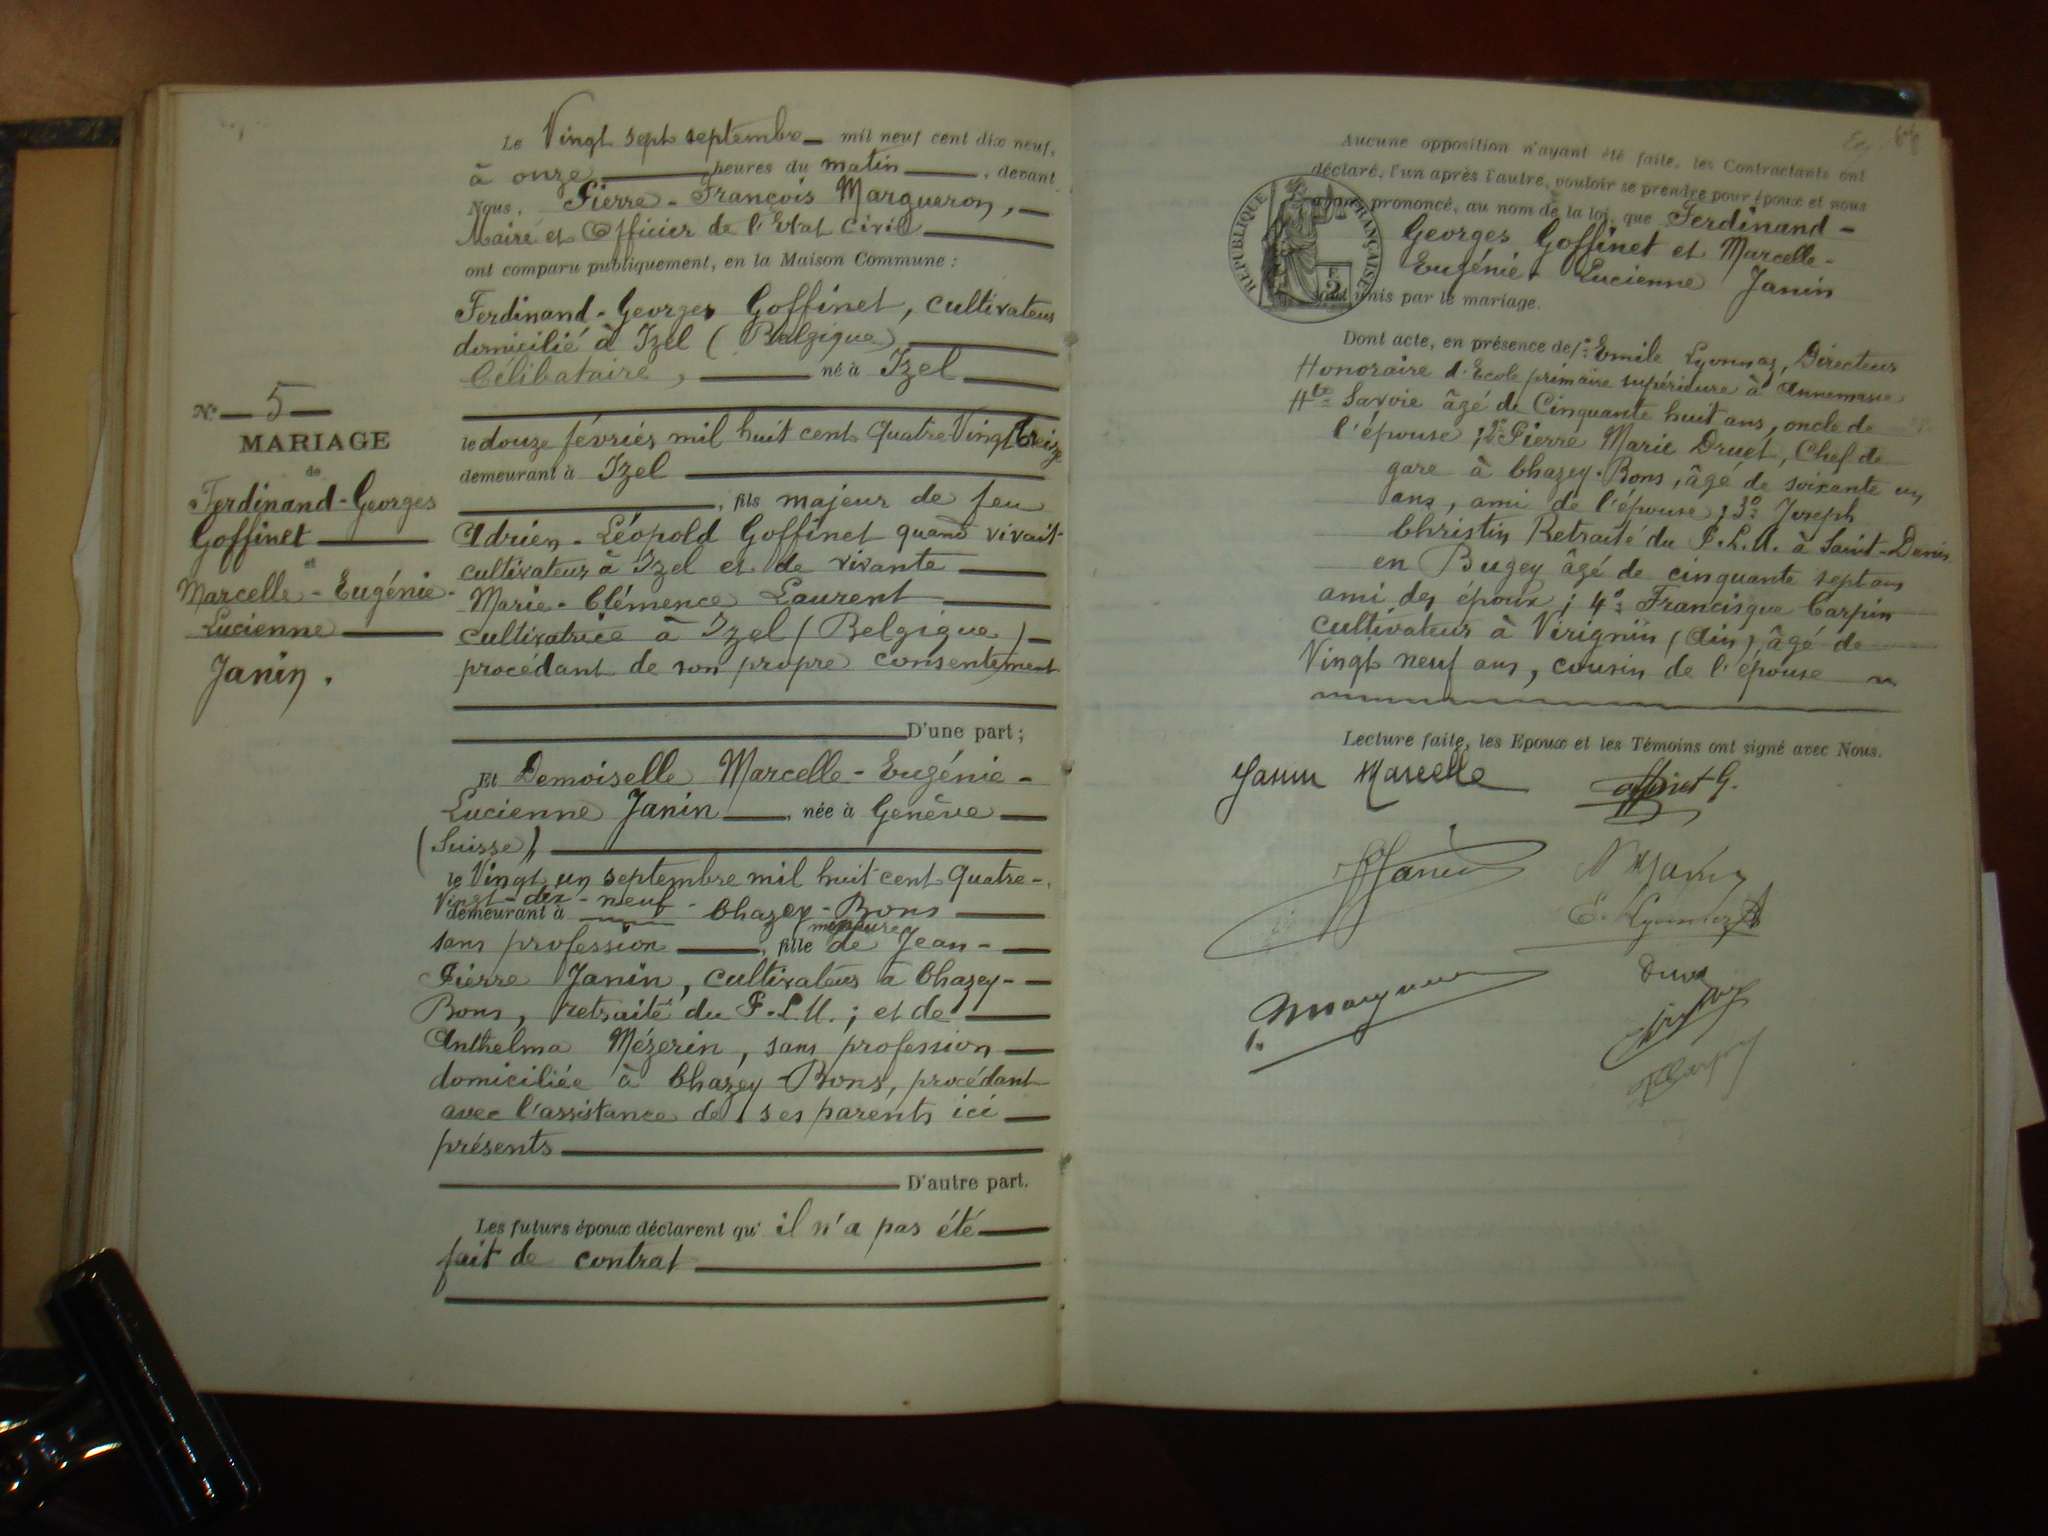 N° 5
MARIAGE
de
Ferdinand-Georges
Goffinet
et
Marcelle-Eugénie-
Lucienne
Janin.
Le Vingt sept septembre mil neuf cent dix neuf,
à onze heures du matin, devant
Nous, Pierre-François Margueron,
Maire et Officier de l'Etat Civil
ont comparu publiquement, en la Maison Commune :
Ferdinand-Georges Goffinet, cultivateur
domicilié à Izel (Belgique)
Célibataire, né à Izel
le douze février mil huit cent quatre Vingt treize
demeurant à Izel
, fils majeur de feu
Adrien-Léopold Goffinet quand vivait
cultivateur à Izel et de vivante
Marie-Clémence Laurent
cultivatrice à Izel (Belgique)
procédant de son propre consentement
D'une part ;
Et Demoiselle Marcelle-Eugénie-
Lucienne Janin, née à Genève
(Suisse),
le Vingt un septembre mil huit cent quatre-
Vingt-dix-neuf
demeurant à Chazey-Bons
sans profession, fille mineure de Jean-
Pierre Janin, cultivateur à Chazey-
Bons, retraité du P.L.M. ; et de
Anthelma Mézerin, sans profession
domiciliée à Chazey-Bons, procédant
avec l'assistance de ses parents ici
présents
D'autre part.
Les futurs époux déclarent qu' il n'a pas été
fait de contrat
68
Aucune opposition n'ayant été faite, les Contractants ont
déclaré, l'un après l'autre, vouloir se prendre pour époux et nous
avons prononcé, au nom de la loi, que Ferdinand-
Georges Goffinet et Marcelle-
Eugénie-Lucienne Janin
sont unis par le mariage.
RÉPUBLIQUE FRANÇAISE
Dont acte, en présence de 1° Emile Lyonnaz, Directeur
Honoraire d'Ecole primaire supérieure à Annemasse
Hte Savoie âgé de Cinquante huit ans, oncle de
l'épouse ; 2° Pierre Marie Druet, Chef de
gare à Chazey-Bons, âgé de soixante un
ans, ami de l'épouse ; 3° Joseph
Christin Retraité du P.L.M. à Saint-Denis
en Bugey âgé de cinquante sept ans
ami des époux ; 4° Francisque Carpin
cultivateur à Virignin (Ain), âgé de
Vingt neuf ans, cousin de l'épouse
Lecture faite, les Epoux et les Témoins ont signé avec Nous.
Janin Marcelle Goffinet G.
Janin
E. Lyonnaz